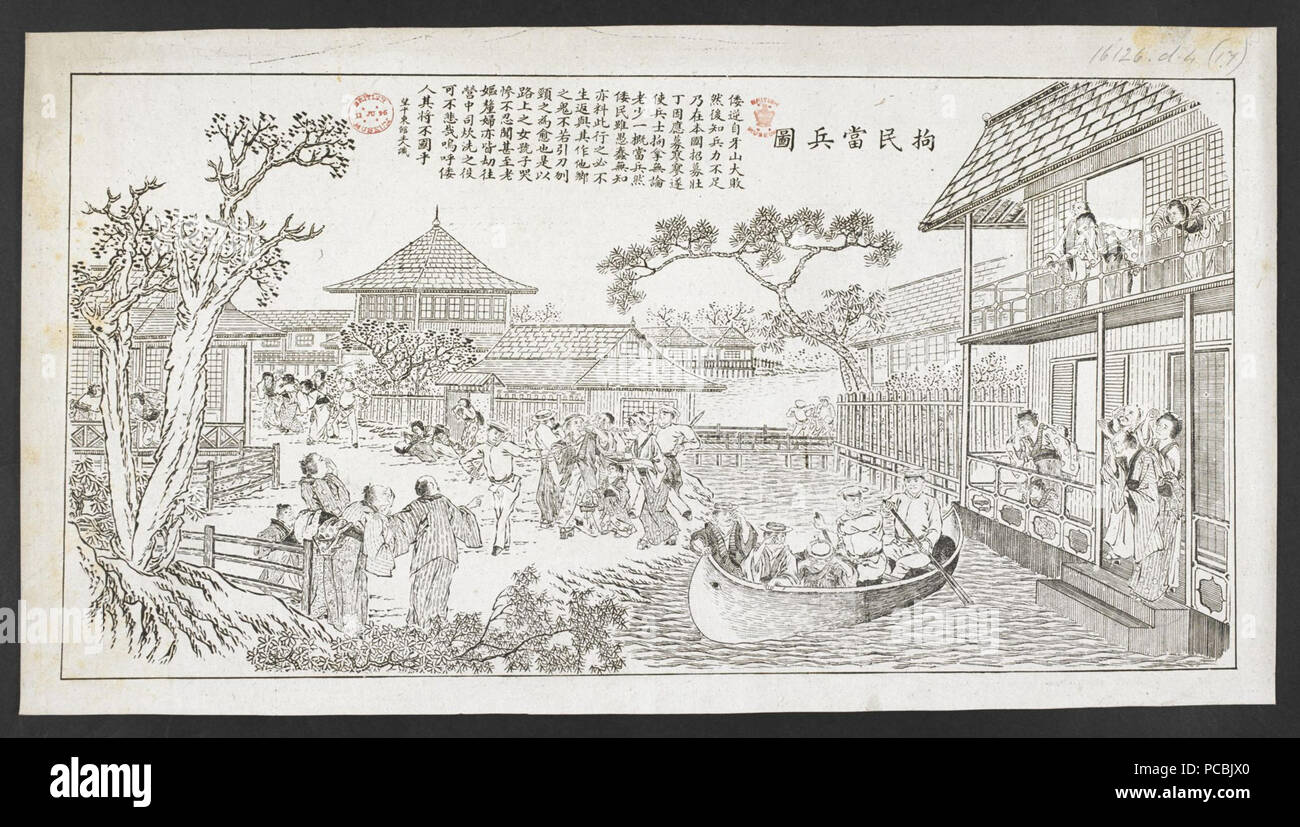 16126.d.4 (17)
拘民當兵圖
倭逆自牙山大敗
然後知兵力不足
乃在本國招募壯
丁因應募寥寥遂
使兵士拘拿無論
老少一概當兵然
倭民雖愚蠢無知
亦料此行之必不
生返與其作他鄉
之鬼不若引刀刎
頸之為愈也是以
路上之女號子哭
慘不忍聞甚至老
嫗釐婦亦皆劫往
營中司炊洗之役
可不悲哉嗚呼倭
人其將不國乎
BRITISH MUSEUM
BRITISH MUSEUM
alamy
a
alamy
PCBJX0
www.alamy.com